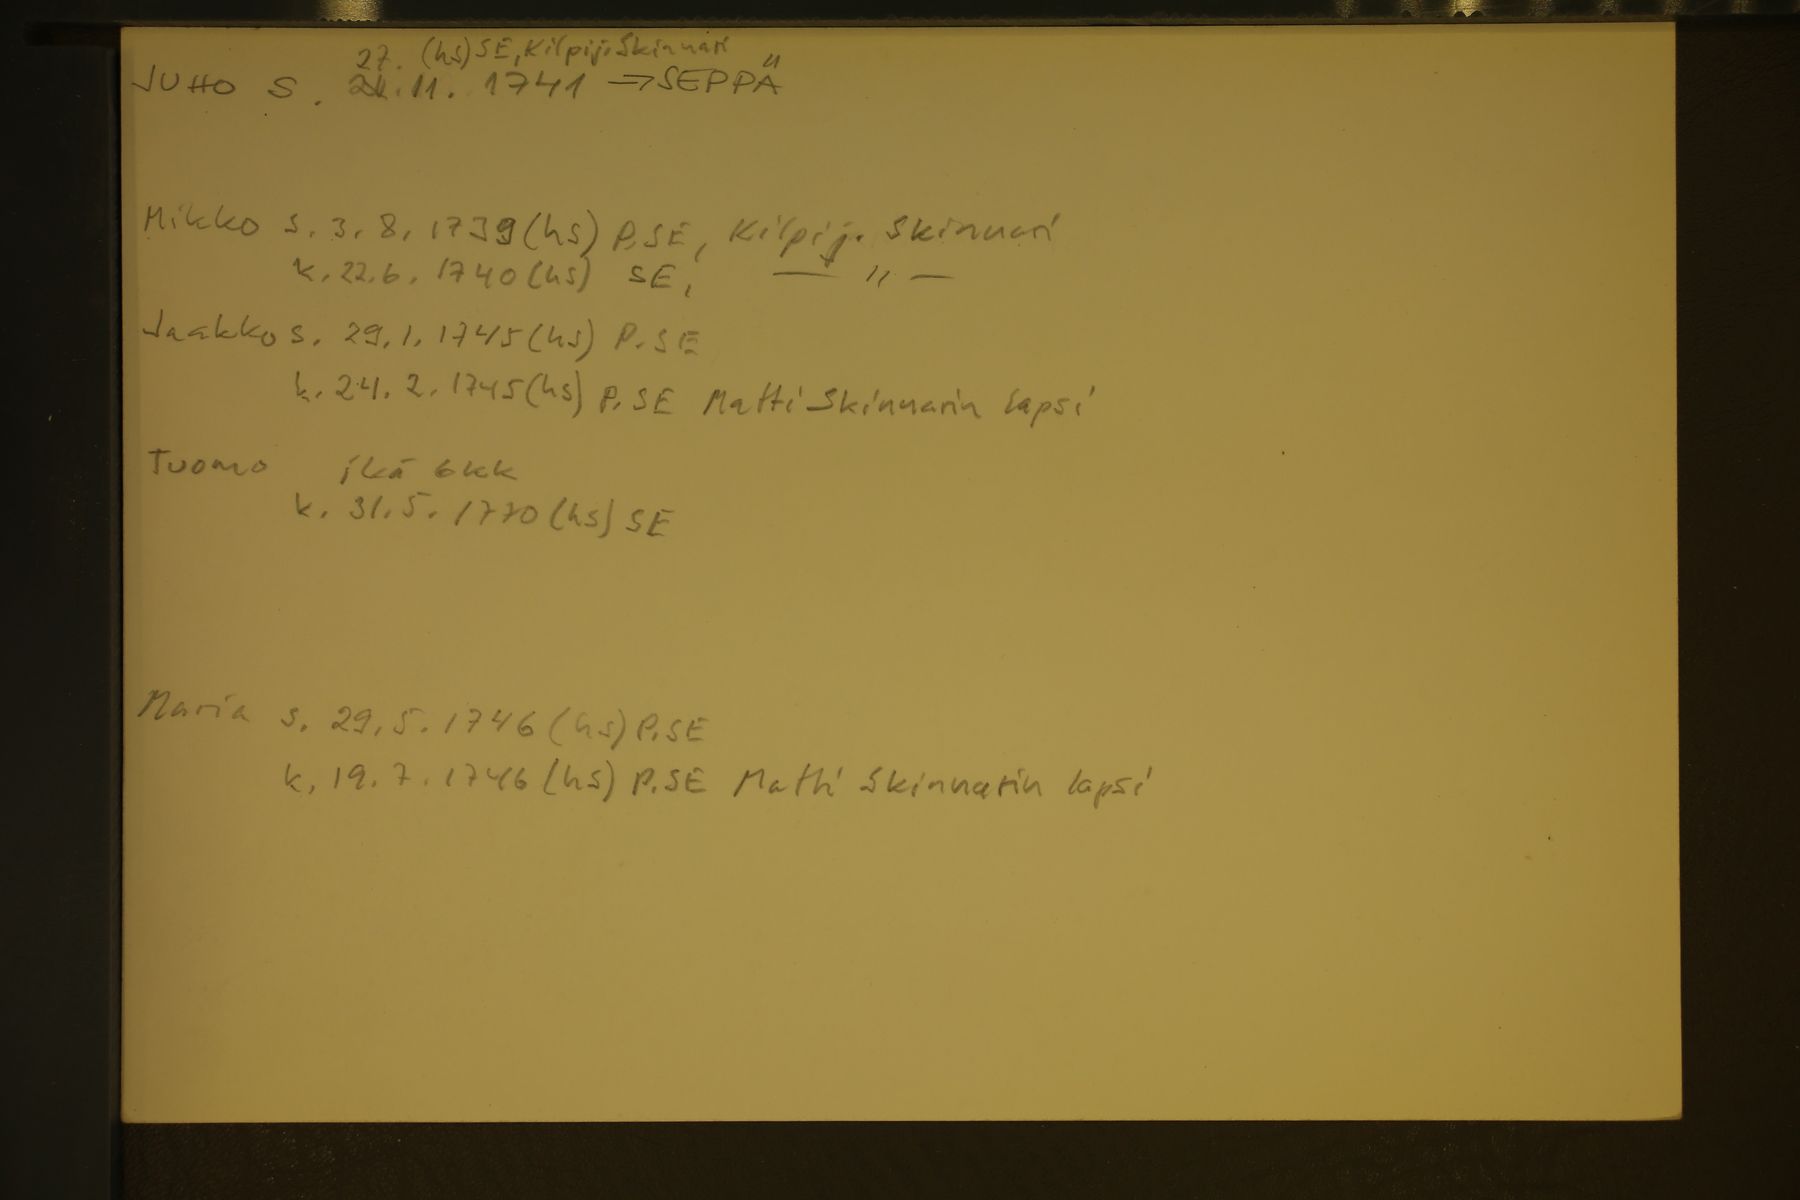 27. (hs) SE, Kilpij. Skinnari
JUHO S. 21.11. 1741 → SEPPÄ
Mikko s. 3. 8. 1739 (hs) P.SE, Kilpij. Skinnari
k. 22.6. 1740 (hs) SE, — " —
Jaakko s. 29.1. 1745 (hs) P.SE
k. 24. 2. 1745 (hs) P.SE Matti Skinnarin lapsi
Tuomo ikä 6kk
k. 31.5. 1770 (hs) SE
Maria s. 29.5. 1746 (hs) P.SE
k. 19.7. 1746 (hs) P.SE Matti Skinnarin lapsi